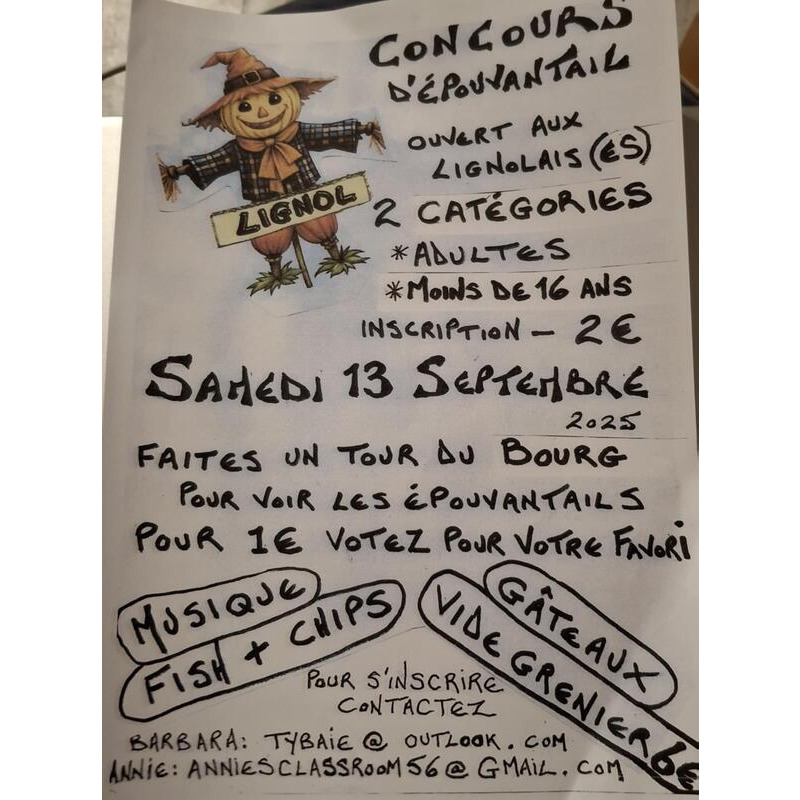 CONCOURS
D'ÉPOUVANTAIL
OUVERT AUX
LIGNOLAIS (ES)
LIGNOL
2 CATÉGORIES
*ADULTES
*MOINS DE 16 ANS
INSCRIPTION - 2€
SAMEDI 13 SEPTEMBRE
2025
FAITES UN TOUR DU BOURG
POUR VOIR LES ÉPOUVANTAILS
POUR 1€ VOTEZ POUR VOTRE FAVORI
MUSIQUE
FISH + CHIPS
GÂTEAUX
VIDE GRENIER 6€
POUR S'INSCRIRE
CONTACTEZ
BARBARA: TYBAIE@OUTLOOK.COM
ANNIE: ANNIESCLASSROOM56@GMAIL.COM